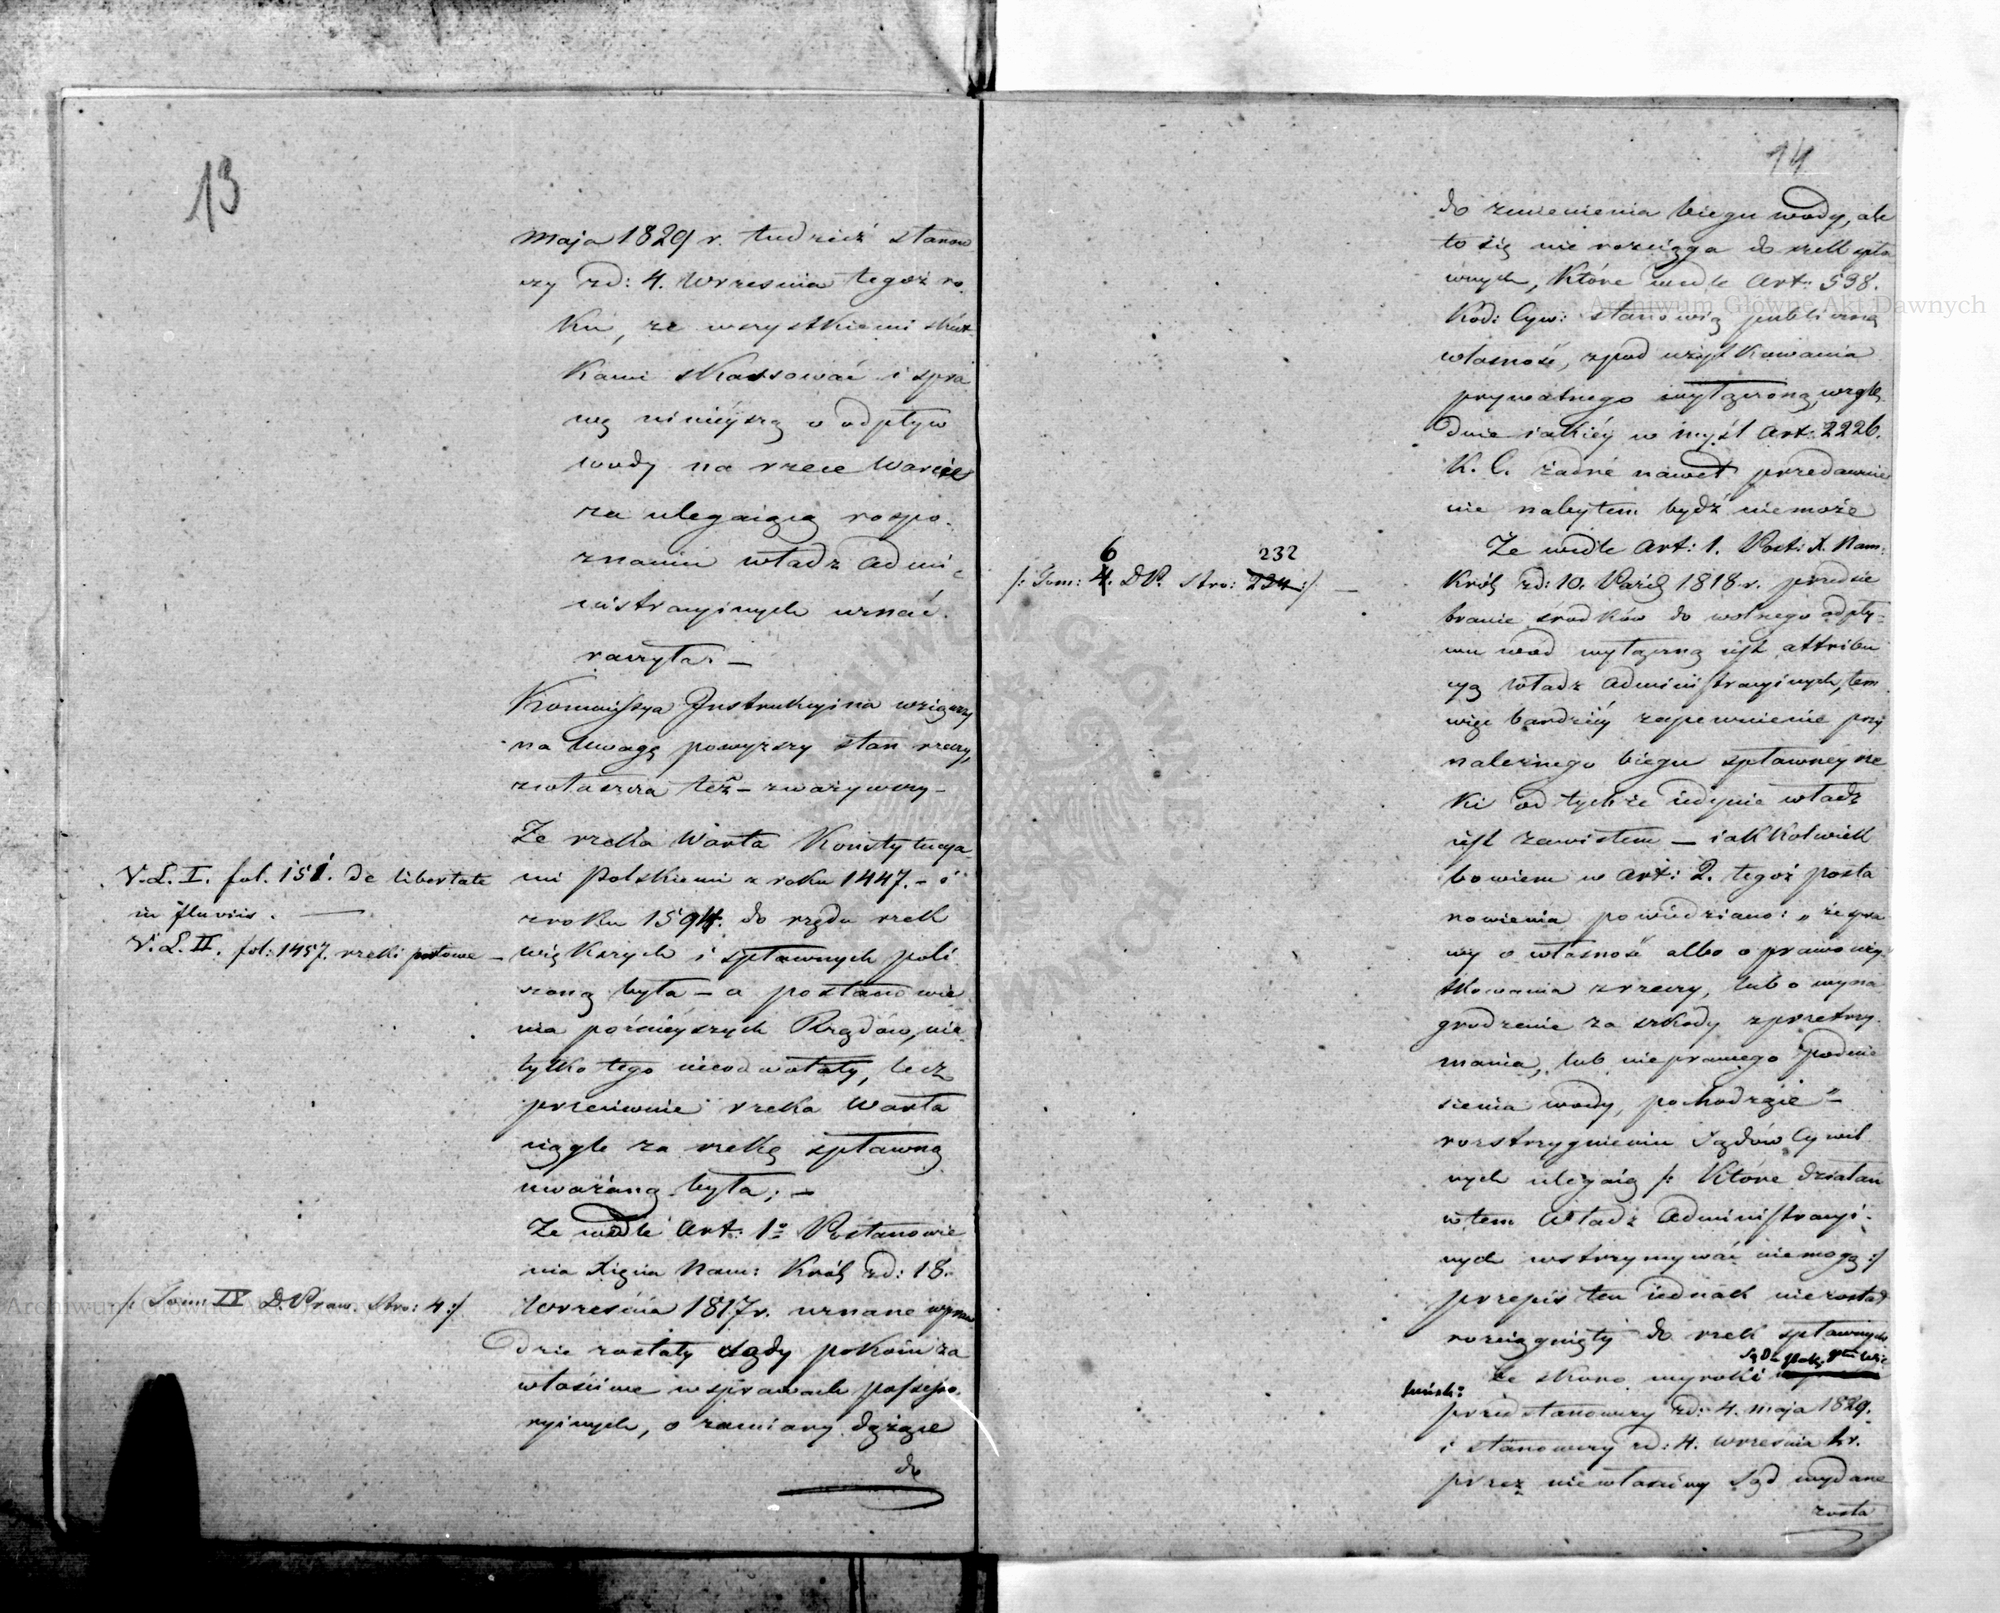 13
maja 1829 r. tudzież stanow
czy zd: 4. Wrzesnia tegoż ro-
ku, ze wszystkiemi skut-
kami skassować i spra
wę ninieyszą o odpływ
wody na rzece Warcie
za ulegaiącą rospo-
znaniu władz admi-
nistracyinych uznać
raczyła. —
Kommissya Instrukcyina wziąwszy
na uwagę powyższy stan rzeczy,
zwłaszcza też — zważywszy —
Że rzeka Warta Konstytucya-
mi Polskiemi z roku 1447. — i
z roku 1594. do rzędu rzek
większych i spławnych poli
czoną była — a postanowie
nia poźnieyszych Rządów, nie
tylko tego nieodwołały, lecz
przeciwnie rzeka Warta
ciągle za rzekę spławną
uważaną była; —
Że wedle Art: 1º Postanowie
nia Xięcia Nam: Król: zd: 18.
Września 1817 r. uznane wpraw
dzie zostały sądy pokoiu za
właściwe w sprawach possesso-
ryinych, o zamiary dążące
do
V. L. I. fol. 151. De libertate
in fluviis. —
V. L. II. fol: 1457. rzeki portowe —
/: Tom: IV D. Praw. Stro: 4 :/
14
do zmienienia biegu wody, ale
to się nie rozciąga do rzek spła
wnych, które wedle Art: 538.
Kod: Cyw: stanowią publiczną
własność, zpod użytkowania
prywatnego wyłączoną, wzglę
dnie iakiéy w myśl Art: 2226.
K. C. żadne nawet przedawnie
nie nabytem bydź niemoże
Że wedle Art: 1. Post: X. Nam:
Król: zd: 10. Paźd: 1818 r. przedsię
branie środków do wolnego odpły-
wu wód wyłączną iest attribu
cyą władz Administracyinych, tem
więc bardziéy zapewnienie przy
należnego biegu spławnéy rze
ki od tychże iedynie władz
iest zawisłem — iakkolwiek
bowiem w Art: 2. tegoż posta
nowienia powiedziano: „że spra
wy o własność albo o prawo uży
tkowania z rzeczy, lub o wyna
grodzenie za szkody z przetrzy-
mania, lub nieprawego podnie
sienia wody, pochodzące" —
rozstrzygnieniu Sądów Cywil
nych ulegaią /: które działań
w tem Władz Administracyi-
nych wstrzymywać niemogą :/
przepis ten iednak nie został
rozciągnięty do rzek spławnych
Sąd- Pok. Ptu Wie
Że skoro wyroki
luńsk:
przedstanowczy zd: 4. maja 1829.
i stanowczy zd: 4. września t. r.
przez niewłaściwy Sąd wydane
zosta
6 232
/: Tom: 4. D P. Stro: 234 :/ —
Archiwum Główne Akt Dawnych